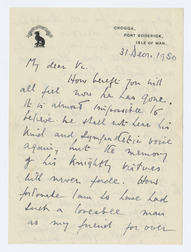 CRONGA,
PORT SODERICK,
ISLE OF MAN.
31 Decr. 1950
My dear Vr.
How bereft you will
all feel now he has gone.
It is almost impossible to
believe we shall not hear his
kind and sympathetic voice
again, but the memory
of his knightly virtues
will never fade. How
fortunate I am to have had
such a loveable man
as my friend for over